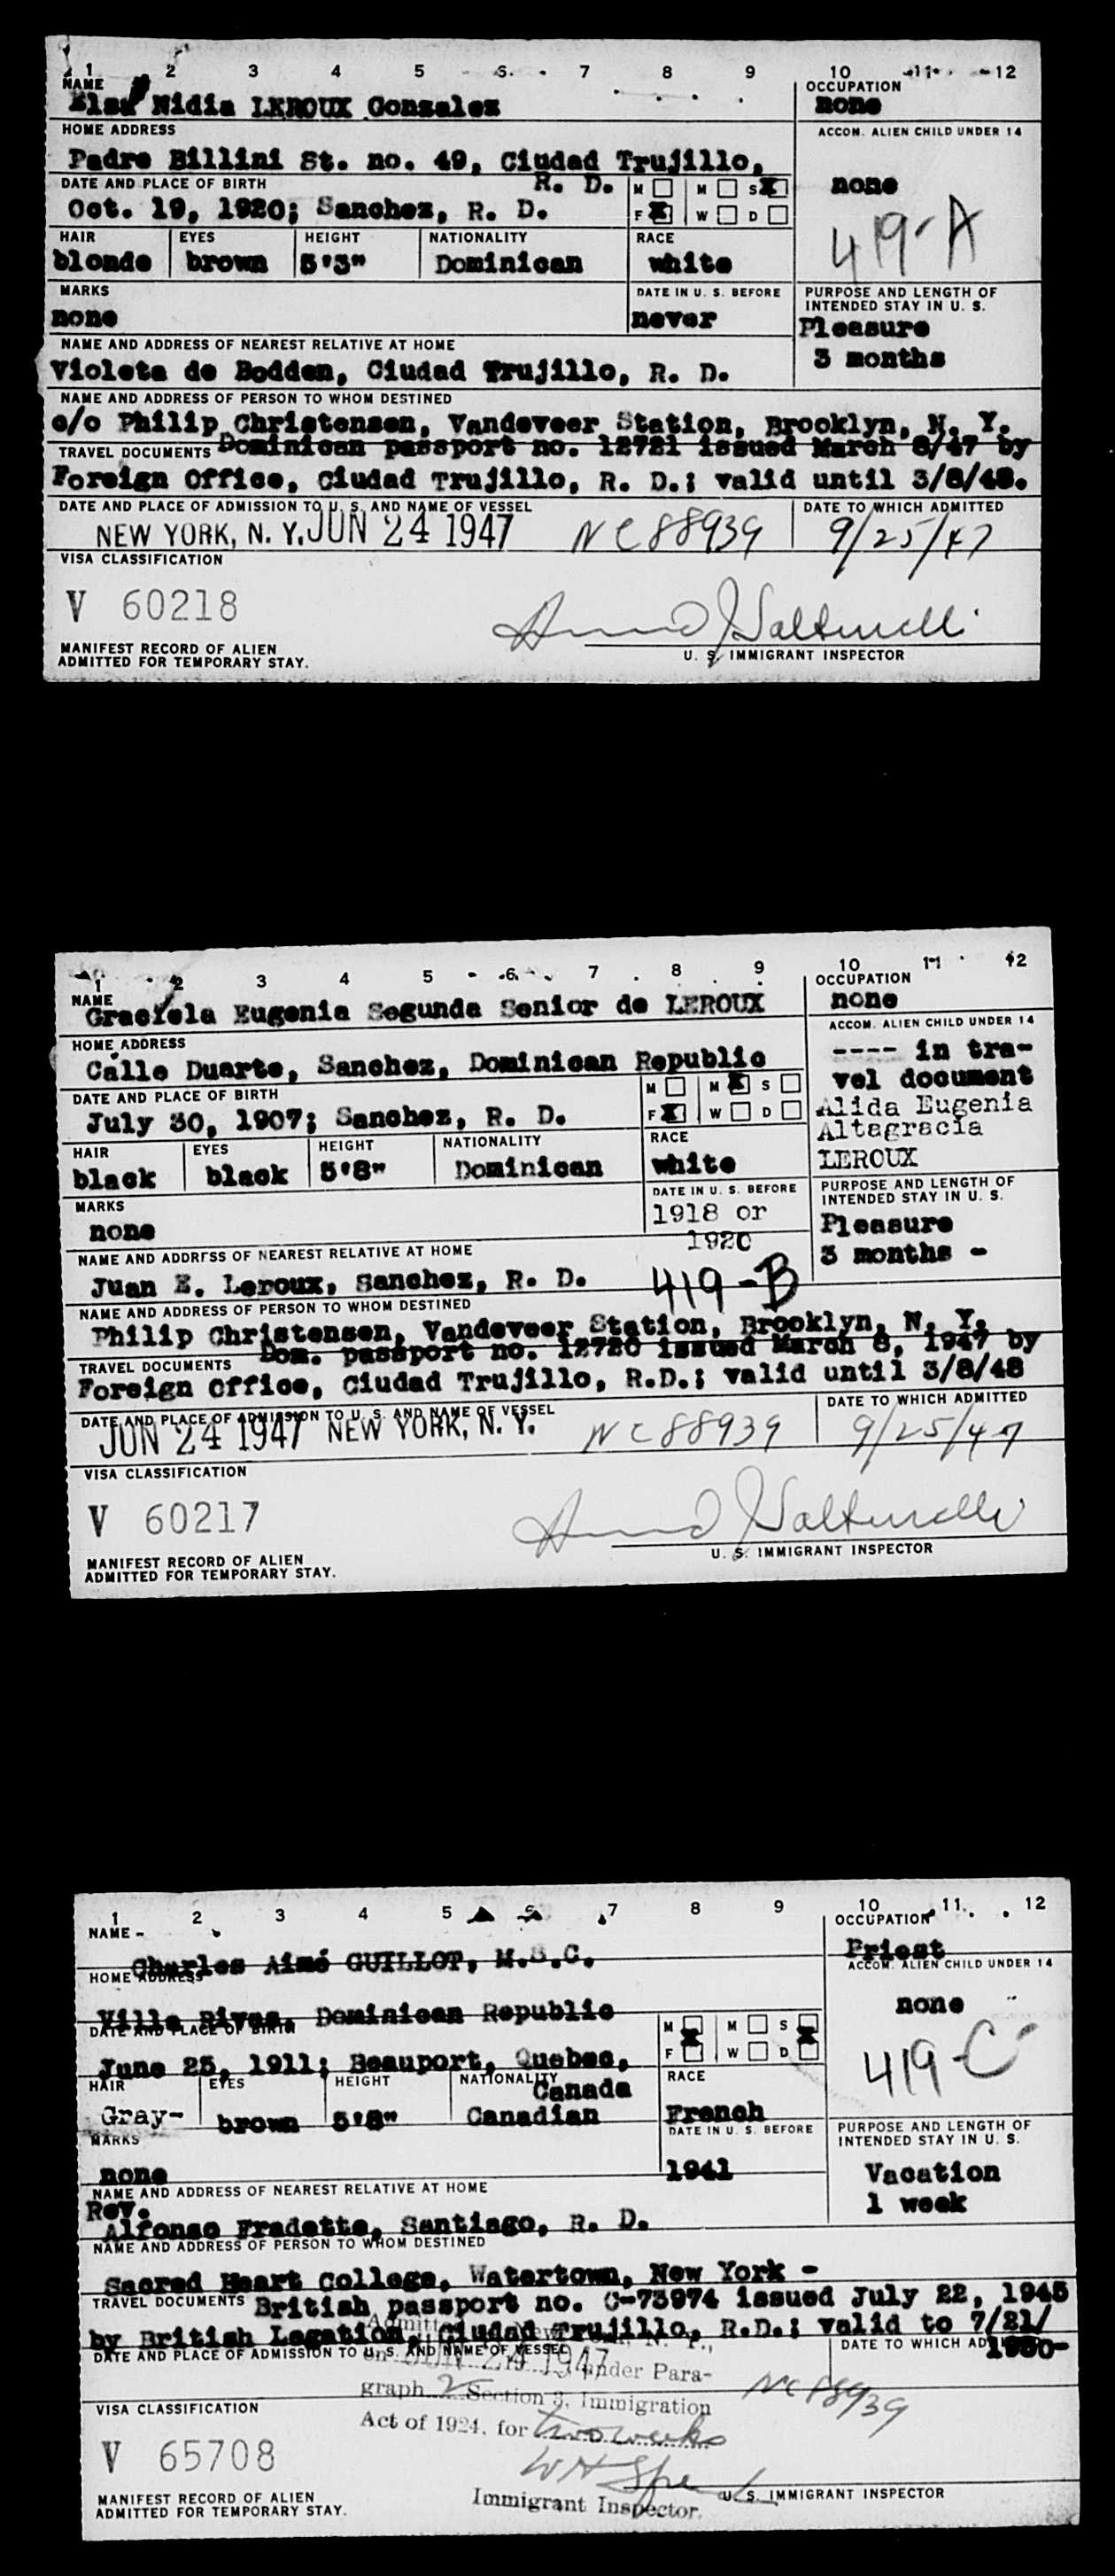 1 2 3 4 5 6 7 8 9 10 11 12
NAME
Elsa Nidia LEROUX Gonzalez
OCCUPATION
none
HOME ADDRESS
Padre Billini St. no. 49, Ciudad Trujillo,
R. D.
ACCOM. ALIEN CHILD UNDER 14
none
419-A
DATE AND PLACE OF BIRTH
Oct. 19, 1920; Sanchez, R. D.
M M S
F W D
HAIR EYES HEIGHT NATIONALITY RACE
blonde brown 5'3" Dominican white
MARKS
none
DATE IN U. S. BEFORE
never
PURPOSE AND LENGTH OF
INTENDED STAY IN U. S.
Pleasure
3 months
NAME AND ADDRESS OF NEAREST RELATIVE AT HOME
Violeta de Bodden, Ciudad Trujillo, R. D.
NAME AND ADDRESS OF PERSON TO WHOM DESTINED
c/o Philip Christensen, Vandeveer Station, Brooklyn, N. Y.
TRAVEL DOCUMENTS Dominican passport no. 12721 issued March 8/47 by
Foreign Office, Ciudad Trujillo, R. D.; valid until 3/8/48.
DATE AND PLACE OF ADMISSION TO U. S. AND NAME OF VESSEL
NEW YORK, N. Y. JUN 24 1947 NC88939
DATE TO WHICH ADMITTED
9/25/47
VISA CLASSIFICATION
V 60218
MANIFEST RECORD OF ALIEN
ADMITTED FOR TEMPORARY STAY.
U. S. IMMIGRANT INSPECTOR
1 2 3 4 5 6 7 8 9 10 11 12
NAME
Graciela Eugenia Segunda Senior de LEROUX
OCCUPATION
none
HOME ADDRESS
Calle Duarte, Sanchez, Dominican Republic
ACCOM. ALIEN CHILD UNDER 14
---- in tra-
vel document
Alida Eugenia
Altagracia
LEROUX
DATE AND PLACE OF BIRTH
July 30, 1907; Sanchez, R. D.
M M S
F W D
HAIR EYES HEIGHT NATIONALITY RACE
black black 5'8" Dominican white
MARKS
none
DATE IN U. S. BEFORE
1918 or
1920
PURPOSE AND LENGTH OF
INTENDED STAY IN U. S.
Pleasure
3 months -
NAME AND ADDRESS OF NEAREST RELATIVE AT HOME
Juan E. Leroux, Sanchez, R. D.
419-B
NAME AND ADDRESS OF PERSON TO WHOM DESTINED
Philip Christensen, Vandeveer Station, Brooklyn, N. Y.
TRAVEL DOCUMENTS Dom. passport no. 12720 issued March 8, 1947 by
Foreign Office, Ciudad Trujillo, R.D.; valid until 3/8/48
DATE AND PLACE OF ADMISSION TO U. S. AND NAME OF VESSEL
JUN 24 1947 NEW YORK, N. Y. NC88939
DATE TO WHICH ADMITTED
9/25/47
VISA CLASSIFICATION
V 60217
MANIFEST RECORD OF ALIEN
ADMITTED FOR TEMPORARY STAY.
U. S. IMMIGRANT INSPECTOR
1 2 3 4 5 6 7 8 9 10 11 12
NAME
Charles Aimé GUILLOT, M.S.C.
OCCUPATION
Priest
HOME ADDRESS
Villa Rivas, Dominican Republic
ACCOM. ALIEN CHILD UNDER 14
none
419-C
DATE AND PLACE OF BIRTH
June 25, 1911; Beauport, Quebec,
Canada
M M S
F W D
HAIR EYES HEIGHT NATIONALITY RACE
Gray- brown 5'8" Canadian French
MARKS
none
DATE IN U. S. BEFORE
1941
PURPOSE AND LENGTH OF
INTENDED STAY IN U. S.
Vacation
1 week
NAME AND ADDRESS OF NEAREST RELATIVE AT HOME
Rev.
Alfonso Fradette, Santiago, R. D.
NAME AND ADDRESS OF PERSON TO WHOM DESTINED
Sacred Heart College, Watertown, New York -
TRAVEL DOCUMENTS British passport no. C-73974 issued July 22, 1945
by British Legation, Ciudad Trujillo, R.D.; valid to 7/21/
1950-
DATE AND PLACE OF ADMISSION TO U. S. AND NAME OF VESSEL
DATE TO WHICH AD
on JUN 24 1947 under Para-
graph 2 Section 3, Immigration
Act of 1924, for two weeks
NC88939
VISA CLASSIFICATION
V 65708
Immigrant Inspector.
U. S. IMMIGRANT INSPECTOR
MANIFEST RECORD OF ALIEN
ADMITTED FOR TEMPORARY STAY.